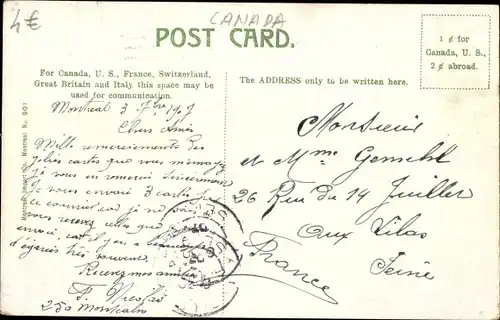 4€
CANADA
POST CARD.
1¢ for
Canada, U. S.,
2¢ abroad.
For Canada, U. S., France, Switzerland,
Great Britain and Italy, this space may be
used for communication.
The ADDRESS only to be written here.
Montreal 3 7bre 1907
Chers Amis
Mille remerciements des
jolies cartes que vous m'envoyez
je vous en remercie sincèrement
Je vous envoie 3 cartes par
ce courrier car je ne
vous recevez celles que
envoie, car il y en a beaucoup
d'égarées très souvent.
Recevez mes amitiés
F. Nicolas
250 Montcalm
Monsieur
et Mme
26 Rue du 14 Juillet
aux Lilas
Seine
France
Montreal Import Co., Montreal No. 901